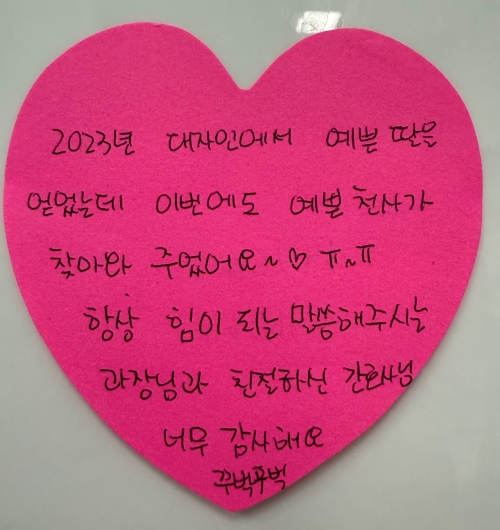 2023년 대자인에서 예쁜 딸을
얻었는데 이번에도 예쁜 천사가
찾아와 주었어요~♡ ㅠ~ㅠ
항상 힘이 되는 말씀해주시는
과장님과 친절하신 간호사님
너무 감사해요
꾸벅꾸벅